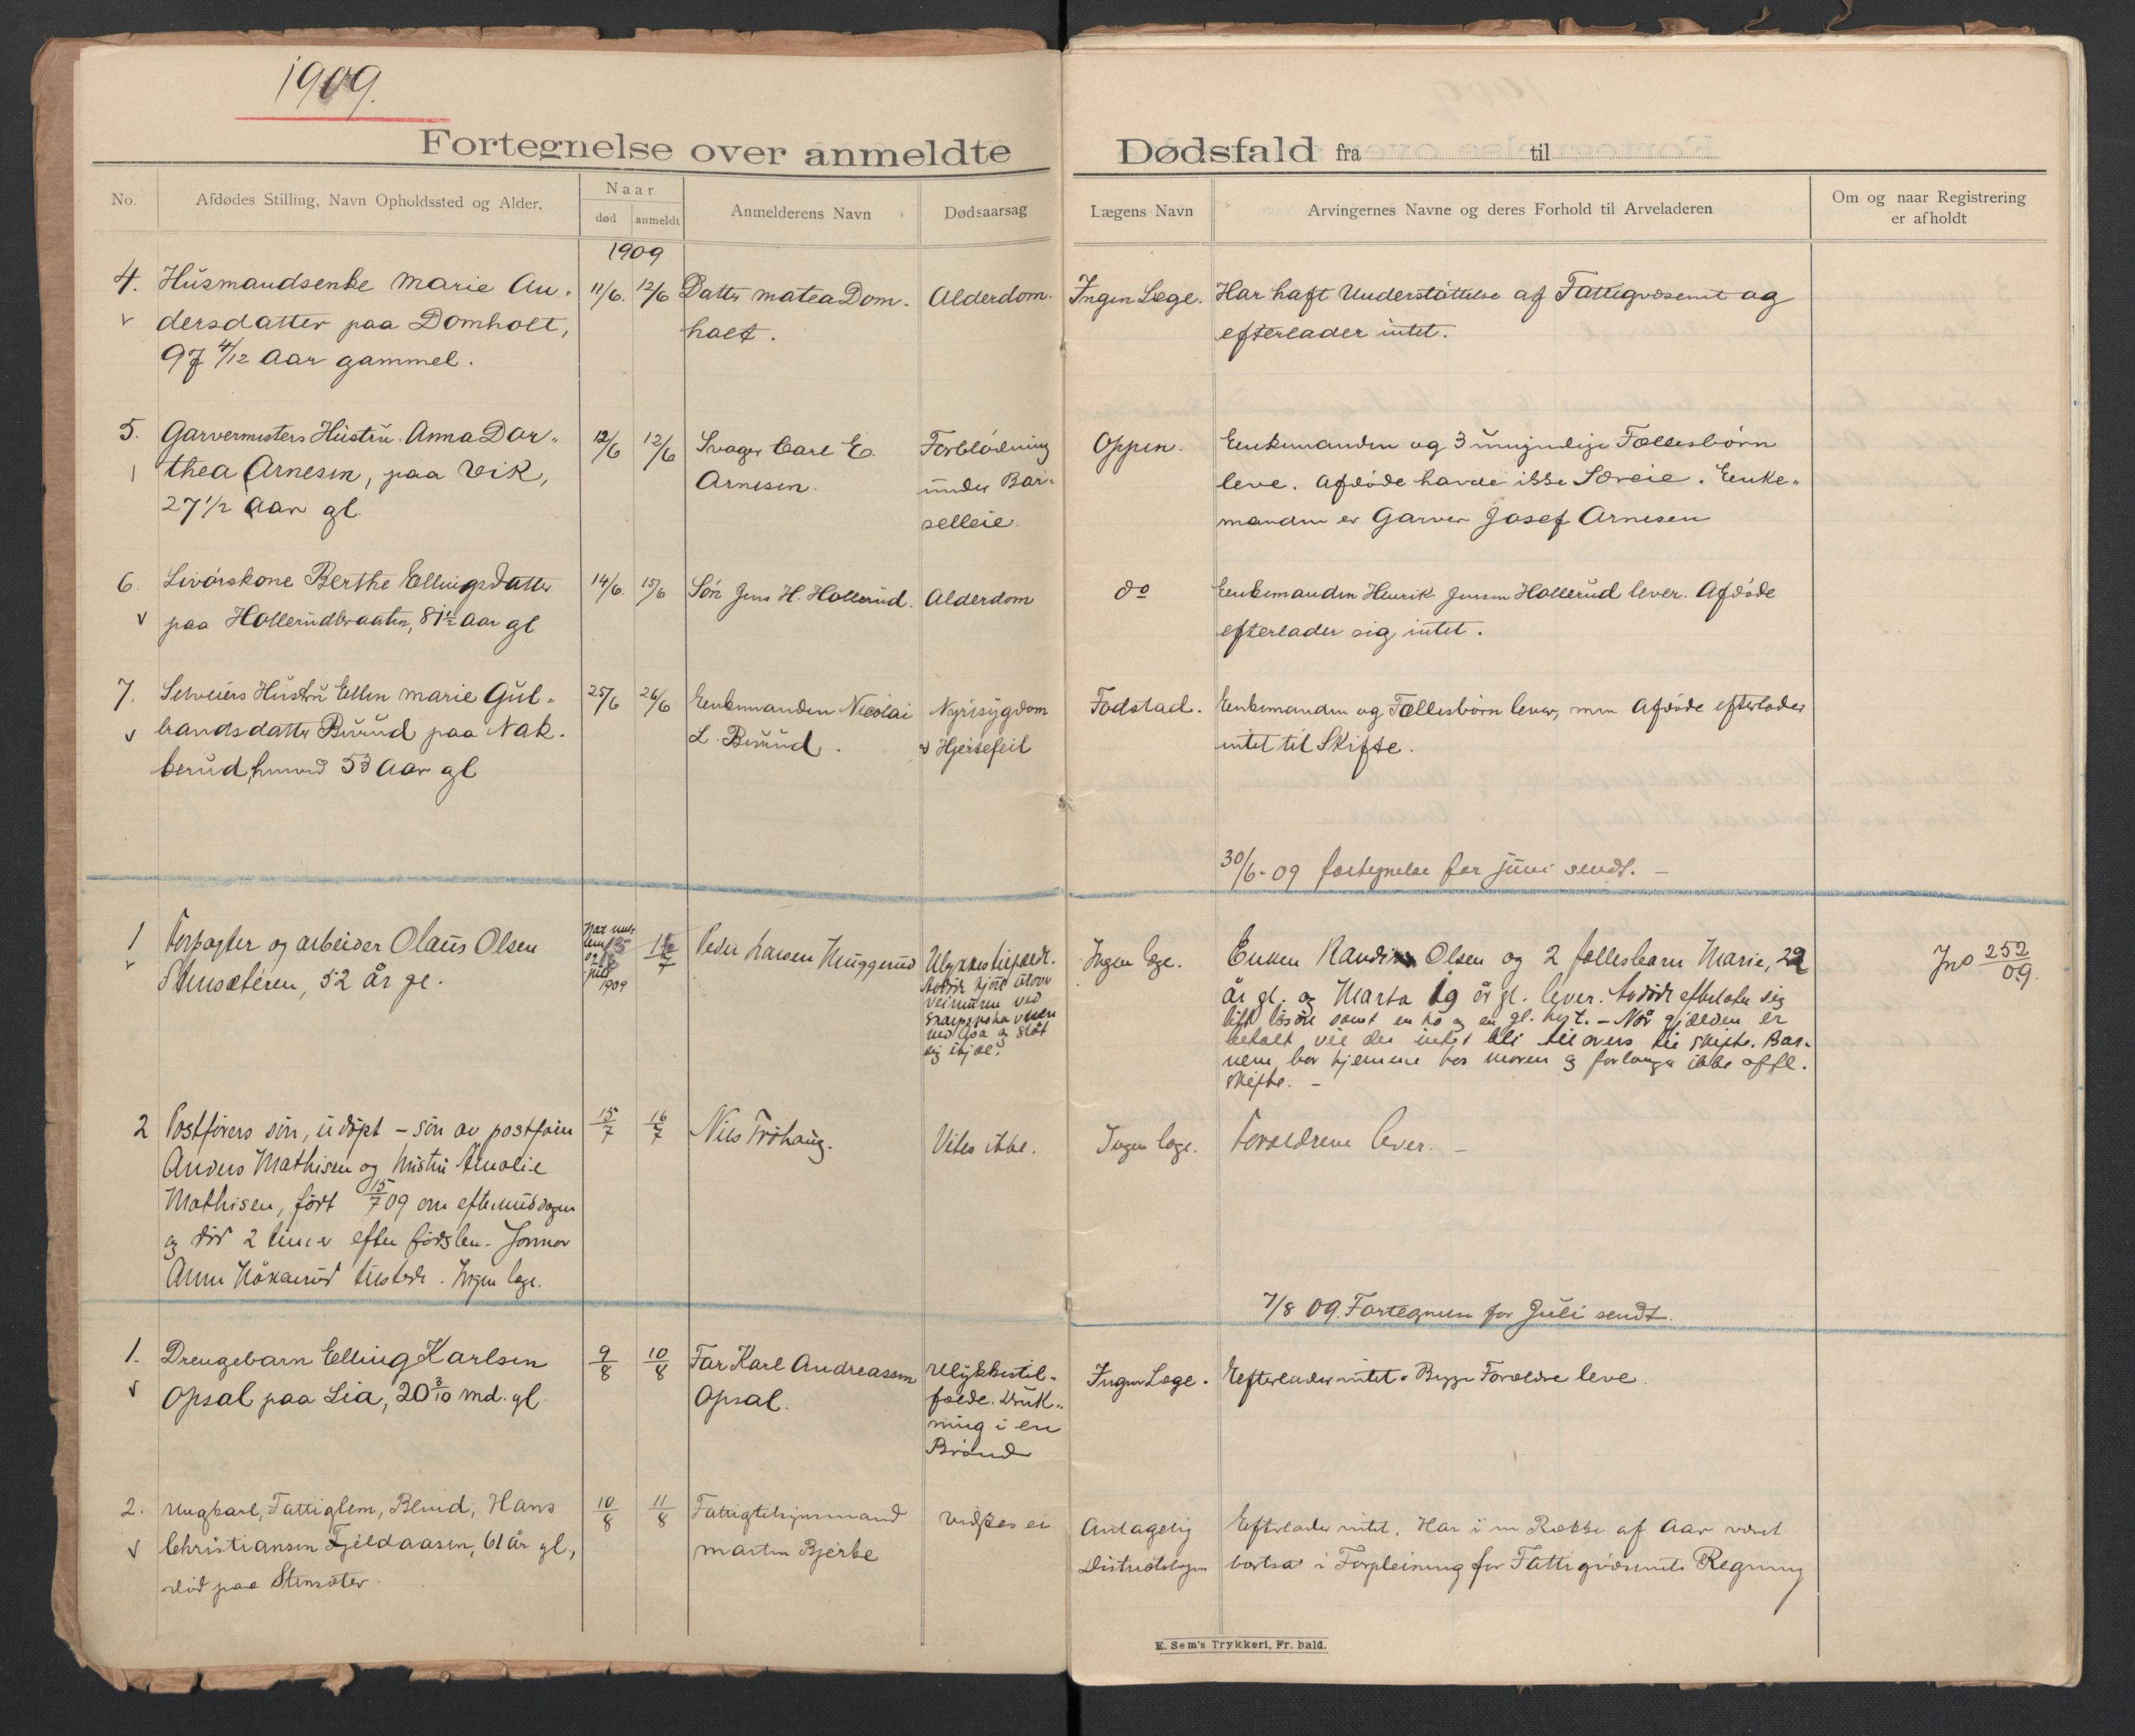 1909.
Fortegnelse over anmeldte Dødsfald fra til
No.
Afdødes Stilling, Navn Opholdssted og Alder.
Naar
død
anmeldt
Anmelderens Navn
Dødsaarsag
Lægens Navn
Arvingernes Navne og deres Forhold til Arveladeren
Om og naar Registrering
er afholdt
1909
4.
Husmandsenke Marie An-
dersdatter paa Domholt,
97 4/12 Aar gammel.
11/6.
12/6
Datter Matea Dom-
holt.
Alderdom.
Ingen Læge.
Har haft Understøttelse af Fattigvæsenet og
efterlader intet.
5.
Garvermesters Hustru Anna Dor-
thea Arnesen, paa Vik,
27 1/2 Aar gl.
12/6
12/6
Svoger Carl E.
Arnesen.
Forblødning
under Bar-
selleie.
Oppen.
Enkemanden og 3 umyndige Fællesbørn
leve. Afdøde havde ikke Særeie. Enke-
manden er Garver Josef Arnesen
6.
Livørskone Berthe Ellingsdatter
paa Hollerudbraaten, 81 1/2 Aar gl
14/6.
15/6
Søn Jens H. Hollerud.
Alderdom
do
Enkemanden Henrik Jensen Hollerud lever. Afdøde
efterlader sig intet.
7.
Selveiers Hustru Ellen Marie Gul-
brandsdatter Burud paa Nak-
kerud, 53 Aar gl
25/6
26/6
Enkemanden Nicolai
L. Burud.
Nyresygdom
& Hjertefeil
Fodstad.
Enkemanden og Fællesbørn lever, men Afdøde efterlader
intet til Skifte.
30/6-09 fortegnelse for juni sendt. -
1
Forpagter og arbeider Olaus Olsen
Stensæteren, 52 år gl.
Nat mel-
lem 15
og 16
juli
1909
16/7
Peder Larsen Muggerud
Ulykkestilfælde.
Avdøde kjørte utover
veimuren ved
ned Åsa og slåt
sig ihjæl.
Ingen læge.
Enken Randi Olsen og 2 fællesbarn Marie, 22
år gl. og Marta 19 år gl. lever. Avdøde efterlater sig
litt løsøre samt en ko og en gl. hest. - Når gjælden er
betalt vil der intet bli tilovers til skifte. Bar-
nene bor hjemme hos moren og forlanger ikke offl.
skifte. -
Jno 252/09.
2
Postførers søn, udøpt - søn av postfører
Anders Mathisen og hustru Amalie
Mathisen, født 15/7 09 om eftermiddagen
og død 2 timer efter fødslen. Jormor
Anne Håkenrud tilstede. Ingen læge.
15/7
16/7
Nils Frøhaug.
Vites ikke.
Ingen læge.
Forældrene lever. -
7/8 09. Fortegnelse for Juli sendt.
1.
Drengebarn Elling Karlsen
Opsal paa Lia, 20 3/10 md. gl.
9/8
10/8
Far Karl Andreassen
Opsal.
Ulykkestil-
fælde. Druk-
ning i en
Brønd
Ingen Læge.
Efterlader intet. Begge Forældre leve.
2.
Ungkarl, Fattiglem, Blind, Hans
Christiansen Fjeldaasen, 61 år gl,
død paa Stensæter.
10/8
11/8
Fattigtilsynsmand
Martin Bjerke
Vides ei
Antagelig
Distriktslægen
Efterlader intet. Har i en Række af Aar været
bortsat i Forpleining for Fattigvæsenets Regning
E. Sem's Trykkeri, Fr. hald.